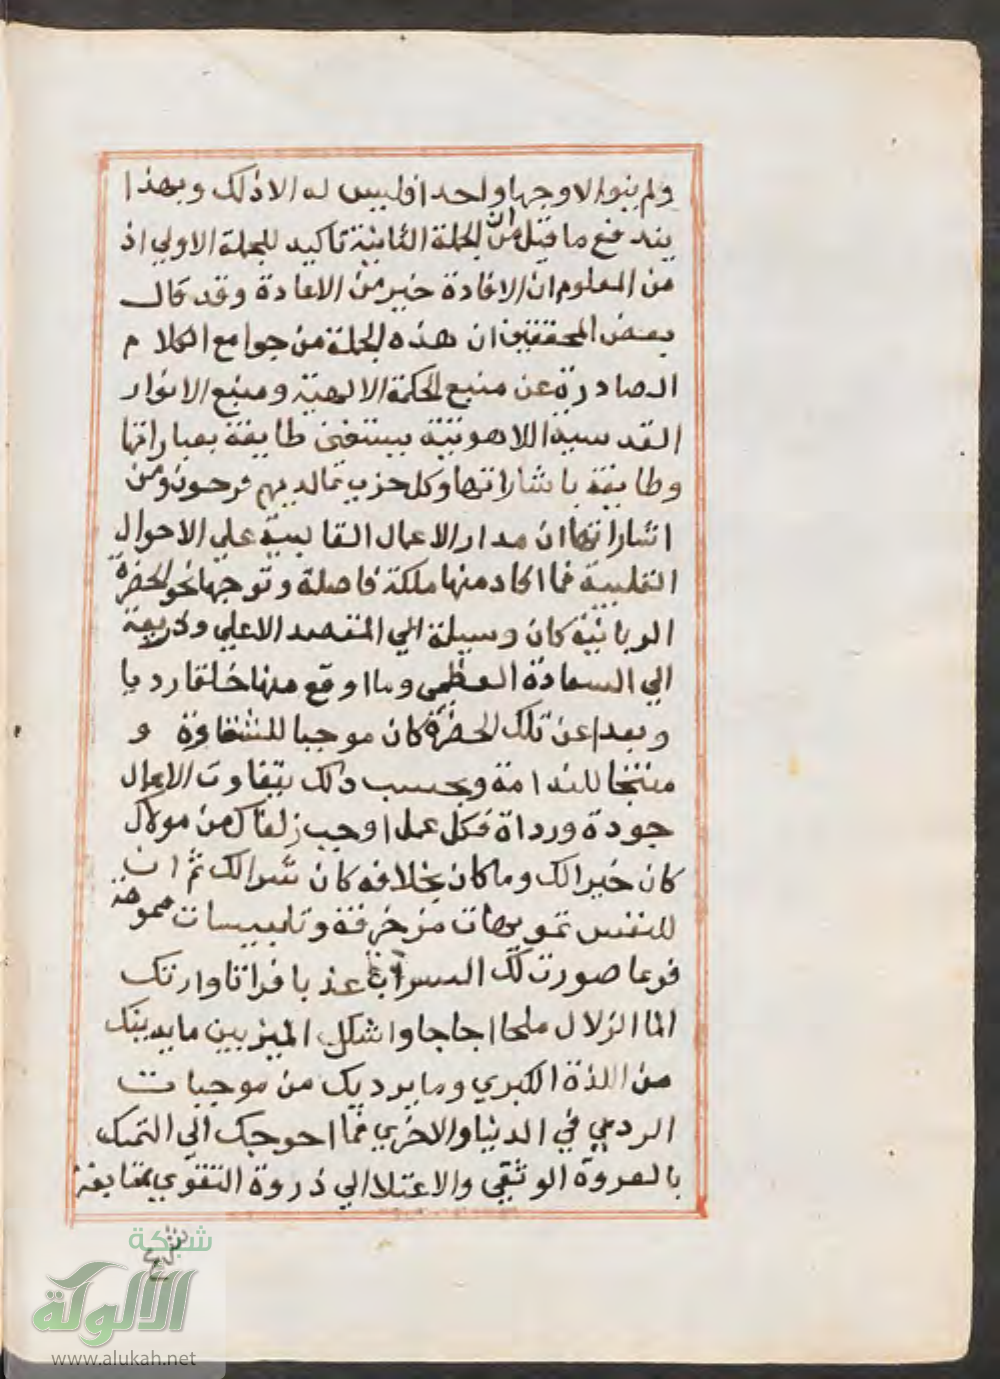 ولم ينو الا وجها واحدا فليس له الا ذلك وبهذا
يندفع ما قيل من ان الجملة الثانية تاكيد للجملة الاولي اذ
من المعلوم ان الافادة خير من الاعادة وقد قال
بعض المحققين ان هذه الجملة من جوامع الكلام
الصادرة عن منبع الحكمة الالهية ومنبع الانوار
القدسية اللاهوتية يستغني طايفة بعباراتها
وطايفة باشاراتها وكل حزب بما لديهم فرحون ومن
اشاراتها ان مدار الاعمال القالبية علي الاحوال
القلبية فما افاد منها ملكة فاضلة وتوجها نحو الحضرة
الربانية كان وسيلة الي المقصد الاعلي وذريعة
الي السعادة العظمي وما اوقع منها خلقا رديا
وبعدا عن تلك الحضرة كان موجبا للشقاوة و
منتجا للندامة وبحسب ذلك يتفاوت الاعمال
جودة ورداة فكل عمل اوجب زلفاك من مولاك
كان خيرا لك وما كان بخلافه كان شرا لك ثم ان
للنفس تمويهات مزخرفة وتلبيسات مموهة
فربما صورت لك السراب عذبا فراتا وارتك
الما الزلال ملحا اجاجا واشكل الميز بين ما يدينك
من اللذة الكبري وما يرديك من موجبات
الردي في الدنيا والاخري فما احوجك الي التمسك
بالعروة الوثقي والاعتلا الي ذروة التقوي بمتابعة
شرع
شبكة
الألوكة
www.alukah.net